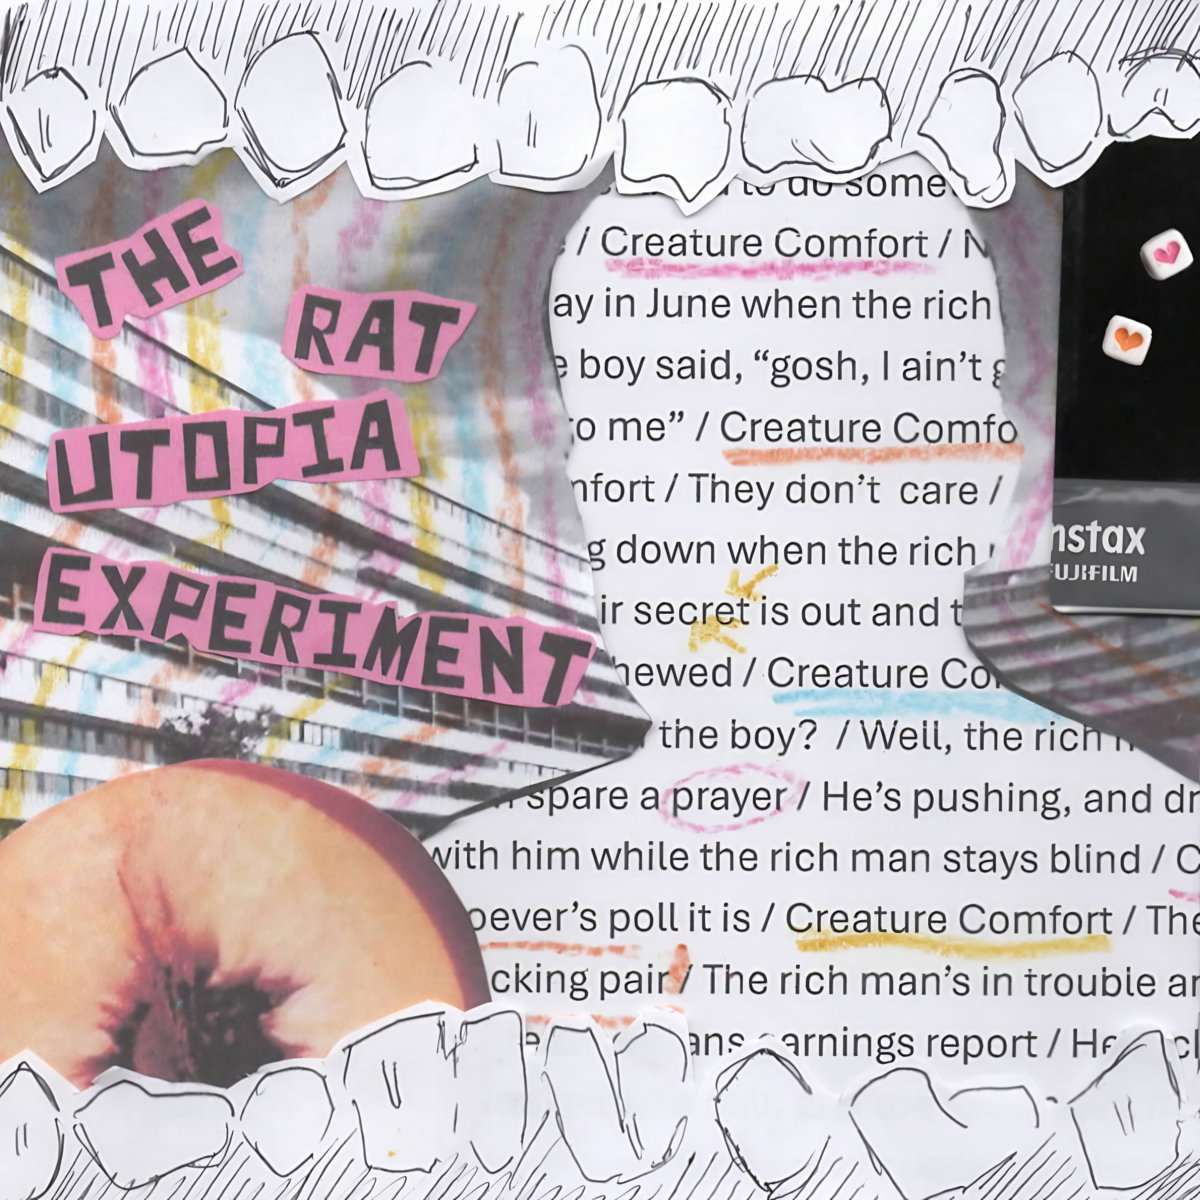 THE
RAT
UTOPIA
EXPERIMENT
to do some
/ Creature Comfort / N
ay in June when the rich
e boy said, “gosh, I ain’t g
to me” / Creature Comfo
nfort / They don’t care /
g down when the rich
ir secret is out and t
hewed / Creature Co
the boy? / Well, the rich m
spare a prayer / He’s pushing, and dr
with him while the rich man stays blind / C
oever’s poll it is / Creature Comfort / The
cking pair / The rich man’s in trouble an
ans earnings report / He cl
instax
FUJIFILM